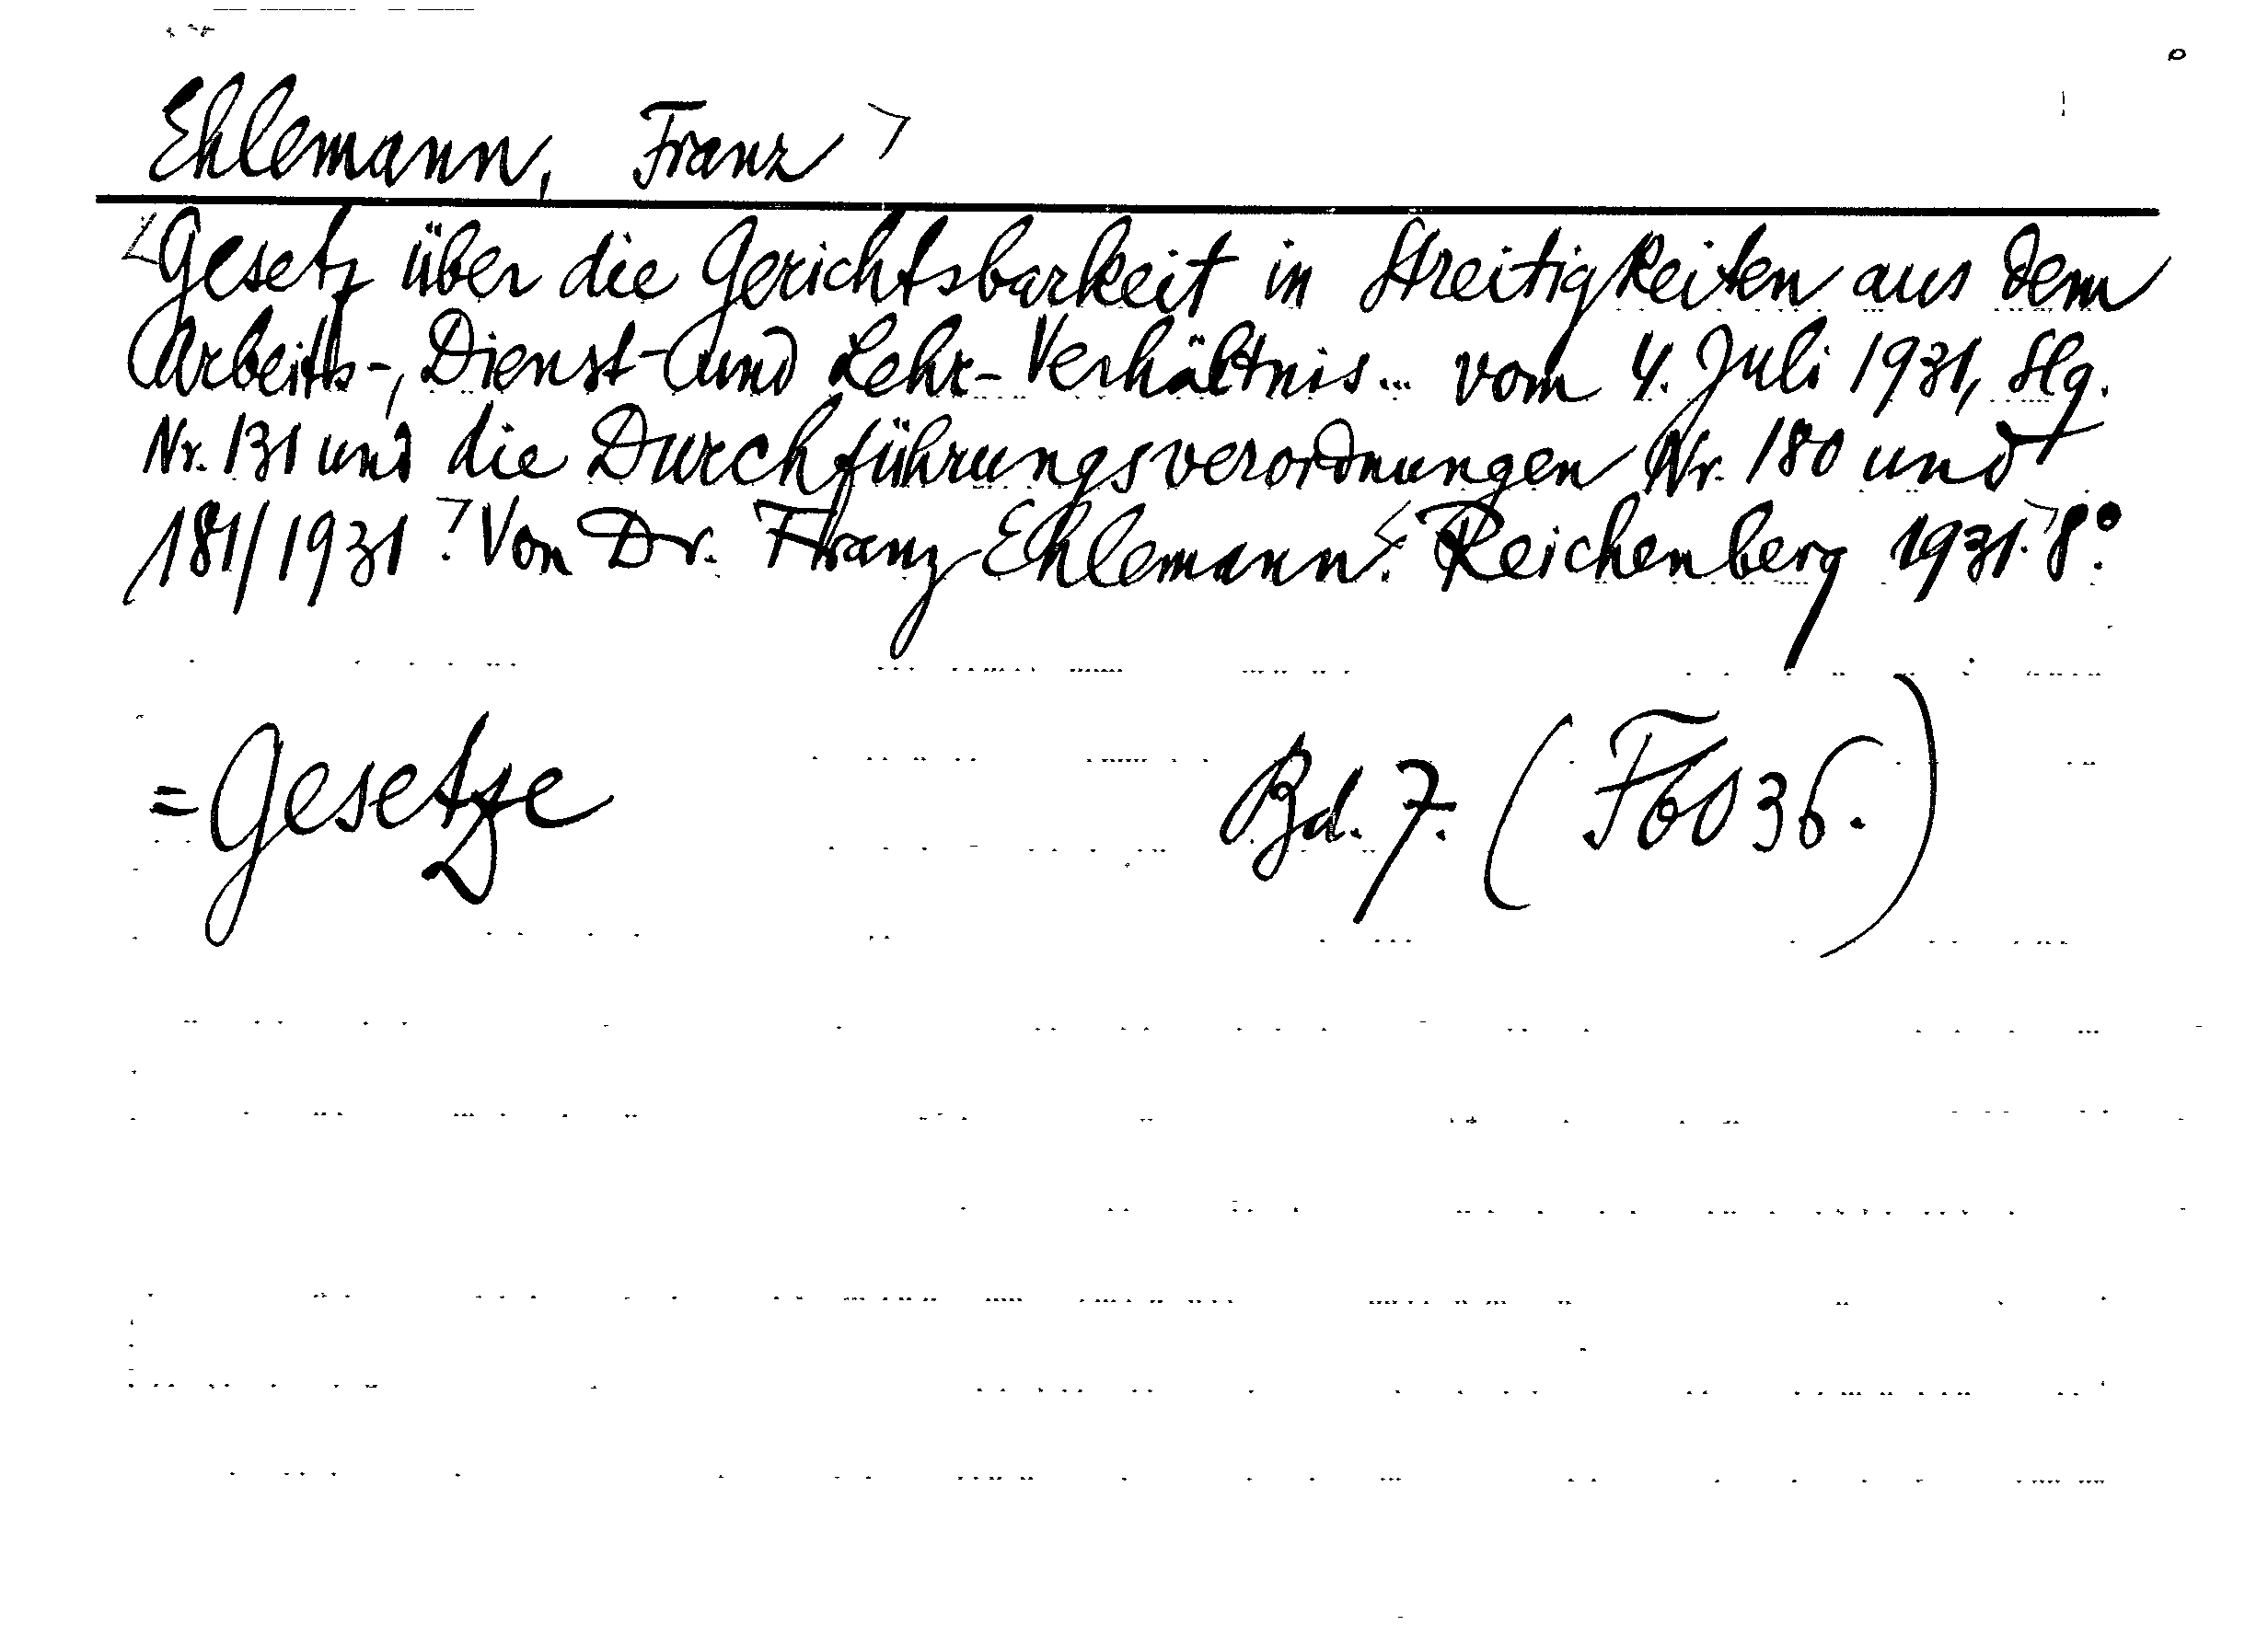 Ehlemann, Franz
Gesetz über die Gerichtsbarkeit in Streitigkeiten aus dem
Arbeits-, Dienst- und Lehr-Verhältnis... vom 4. Juli 1931, Slg.
Nr. 131 und die Durchführungsverordnungen Nr. 180 und
181/1931. Von Dr. Franz Ehlemann. Reichenberg 1931. 8°.
= Gesetze Bd. 7. (F6036.)